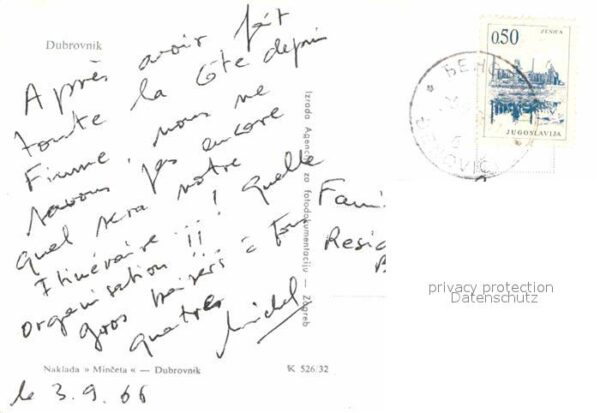 Dubrovnik
Après avoir fait
toute la Côte depuis
Fiume, nous ne
savons pas encore
quel sera notre
Itinéraire !! Quelle
organisation !!
gros baisers à tous
quatres
Michel
Naklada » Minčeta « — Dubrovnik
K 526/32
le 3.9.66
Izrada Agencija za fotodokumentaciju — Zagreb
ZENICA
0,50
JUGOSLAVIJA
Fami
Resid
privacy protection
Datenschutz